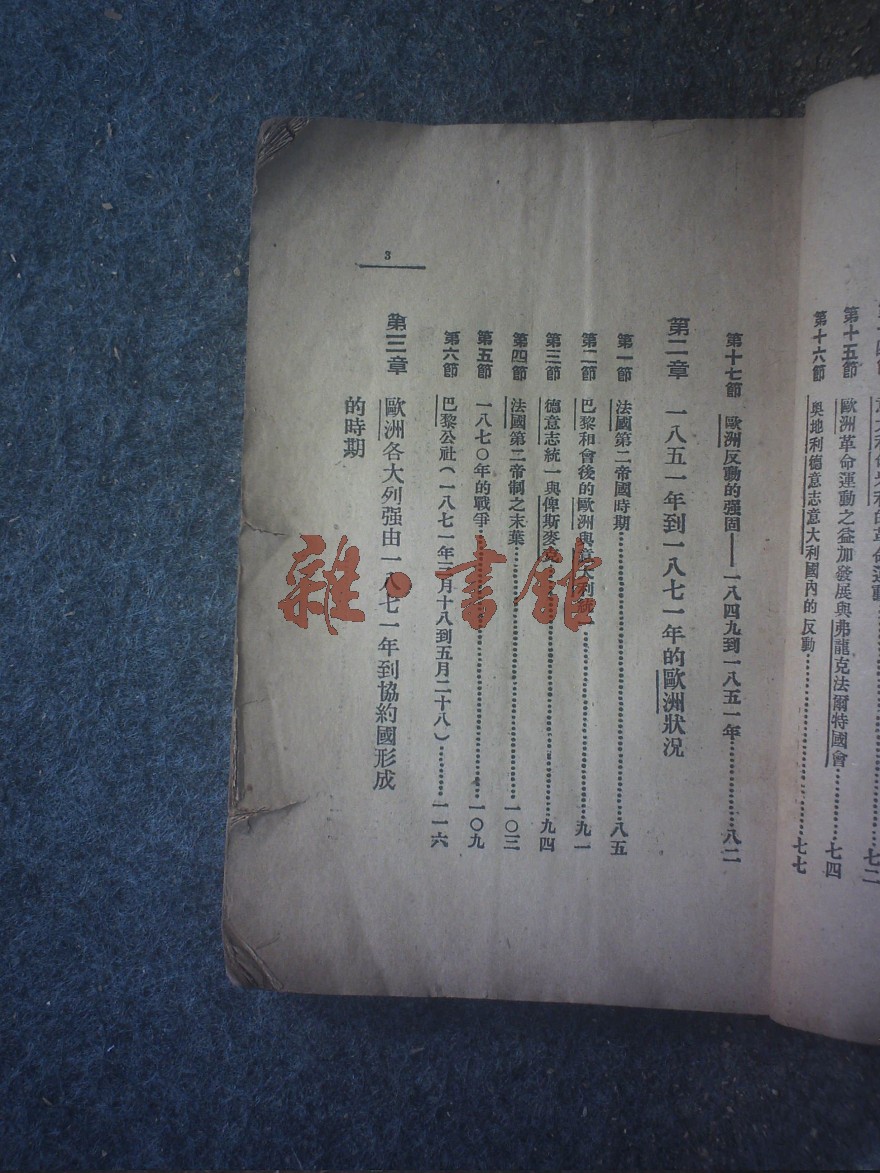 第十五節 歐洲革命運動之益加發展與弗龍克法爾特國會……七四
第十六節 奧地利德意志意大利國內的反動……七七
第十七節 歐洲反動的强固——一八四九到一八五一年……八二
第二章 一八五一年到一八七一年的歐洲狀況
第一節 法國第二帝國時期……八五
第二節 巴黎和會後的歐洲與意大利統一……九一
第三節 德意志統一與俾斯麥克……九四
第四節 法國第二帝制之末葉……一〇三
第五節 一八七〇年的戰爭……一〇九
第六節 巴黎公社(一八七一年三月十八到五月二十八)……一一六
第三章 歐洲各大列强由一八七一年到協約國形成
的時期
3
雜·書館